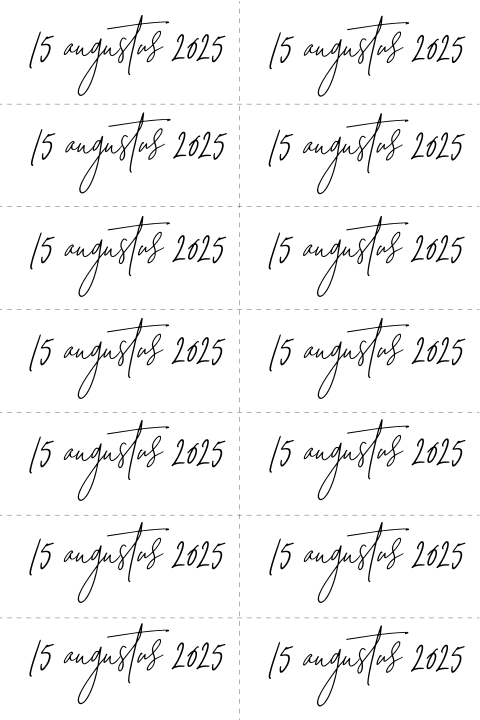 15 augustus 2025 15 augustus 2025
15 augustus 2025 15 augustus 2025
15 augustus 2025 15 augustus 2025
15 augustus 2025 15 augustus 2025
15 augustus 2025 15 augustus 2025
15 augustus 2025 15 augustus 2025
15 augustus 2025 15 augustus 2025